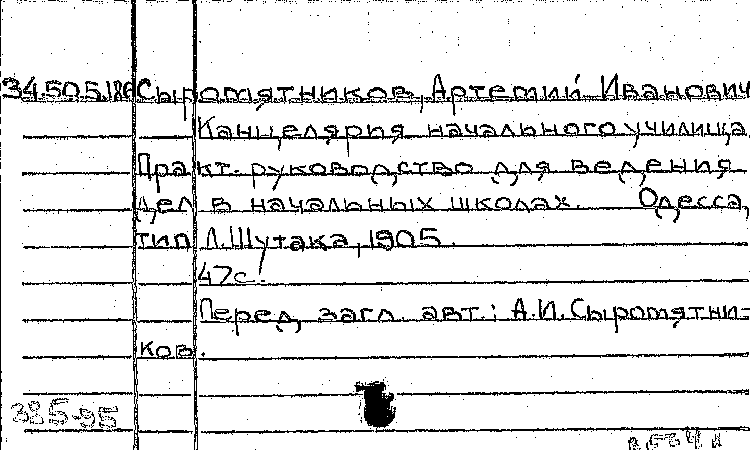 34.505.186 Сыромятников, Артемий Иванович
Канцелярия начального училища.
Практ. руководство для ведения
дел в начальных школах. Одесса,
тип Л. Шутака, 1905.
47с.
Перед загл. авт.: А.И.Сыромятни-
ков.
385-95